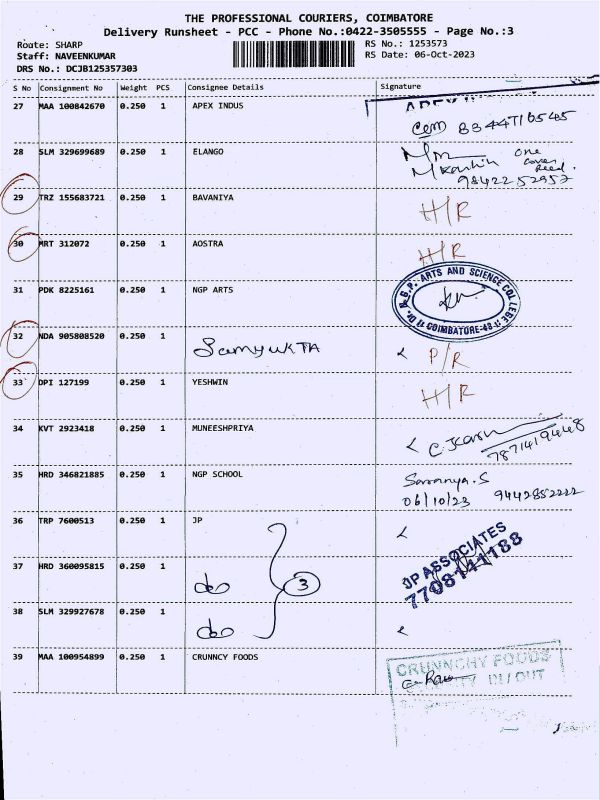 THE PROFESSIONAL COURIERS, COIMBATORE
Delivery Runsheet - PCC - Phone No.:0422-3505555 - Page No.:3
Route: SHARP
RS No.: 1253573
Staff: NAVEENKUMAR
RS Date: 06-Oct-2023
DRS No.: DCJB125357303
S No Consignment No Weight PCS Consignee Details Signature
27 MAA 100842670 0.250 1 APEX INDUS
28 SLM 329699689 0.250 1 ELANGO one cover
98422 52957
29 TRZ 155683721 0.250 1 BAVANIYA H/R
30 MRT 312072 0.250 1 AOSTRA H/R
31 PDK 8225161 0.250 1 NGP ARTS N.G.P. ARTS AND SCIENCE COLLEGE
COIMBATORE-48
32 NDA 905808520 0.250 1 Samyukta P/R
33 DPI 127199 0.250 1 YESHWIN H/R
34 KVT 2923418 0.250 1 MUNEESHPRIYA
7871419448
35 HRD 346821885 0.250 1 NGP SCHOOL Saranya.S
06/10/23 9442852222
36 TRP 7600513 0.250 1 JP
JP ASSOCIATES
37 HRD 360095815 0.250 1 do 3
7708111188
38 SLM 329927678 0.250 1 do
39 MAA 100954899 0.250 1 CRUNNCY FOODS CRUNNCHY FOODS
SECURITY IN / OUT